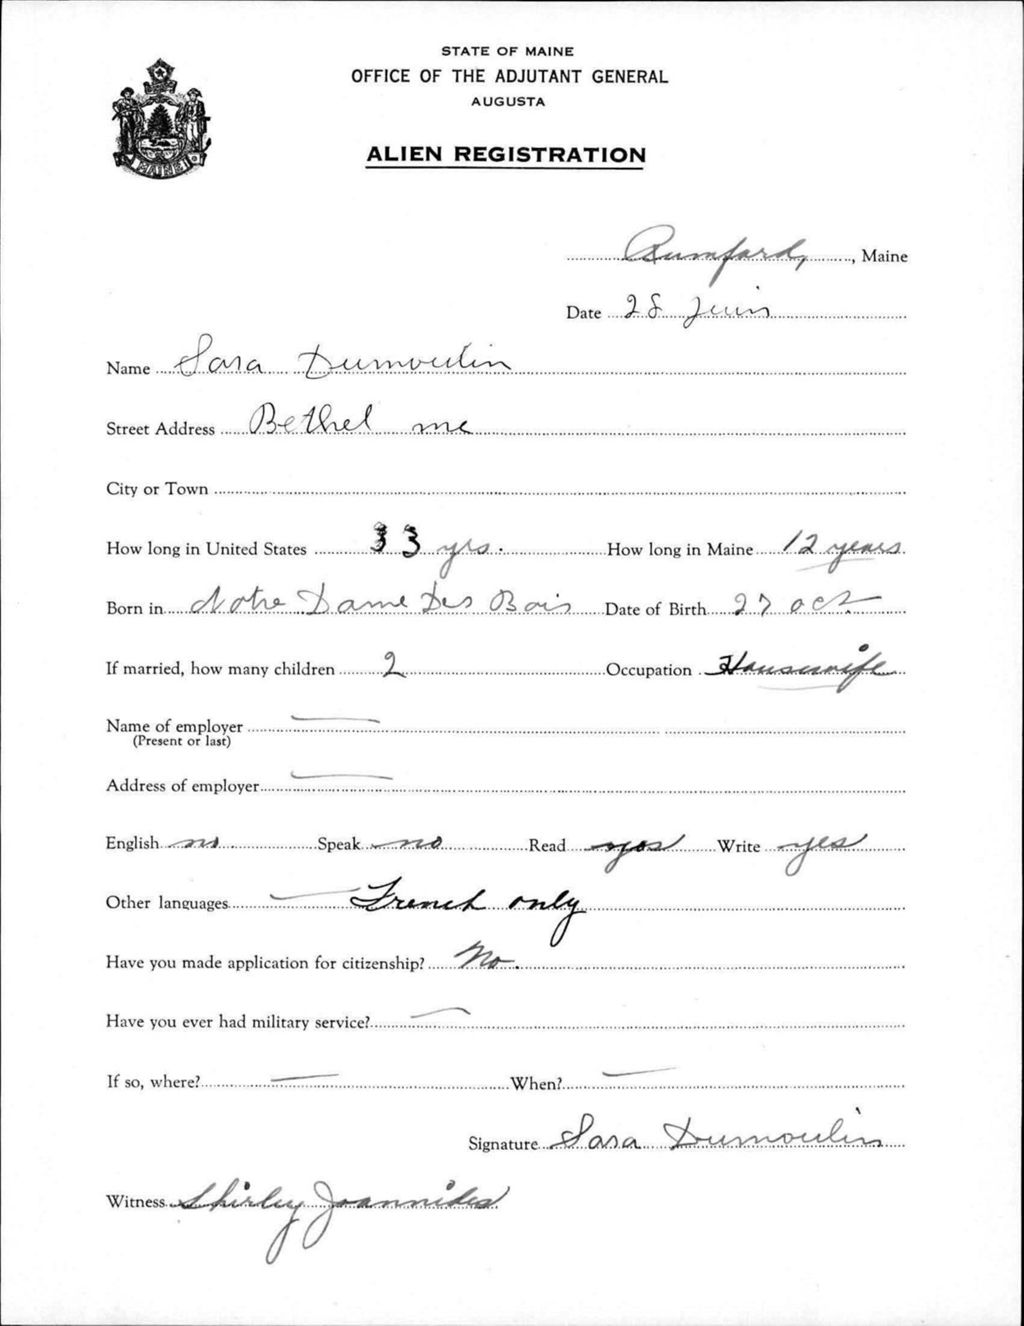 STATE OF MAINE
OFFICE OF THE ADJUTANT GENERAL
AUGUSTA
ALIEN REGISTRATION
Rumford, , Maine
Date 28 Juin
Name Sara Dumoulin
Street Address Bethel me
City or Town
How long in United States 33 yrs. How long in Maine 12 years
Born in Notre Dame Des Bois Date of Birth 27 oct
If married, how many children 2 Occupation Housewife
Name of employer
(Present or last)
Address of employer
English no Speak no Read yes Write yes
Other languages French only
Have you made application for citizenship? No.
Have you ever had military service?
If so, where? When?
Signature Sara Dumoulin
Witness Shirley Joannides